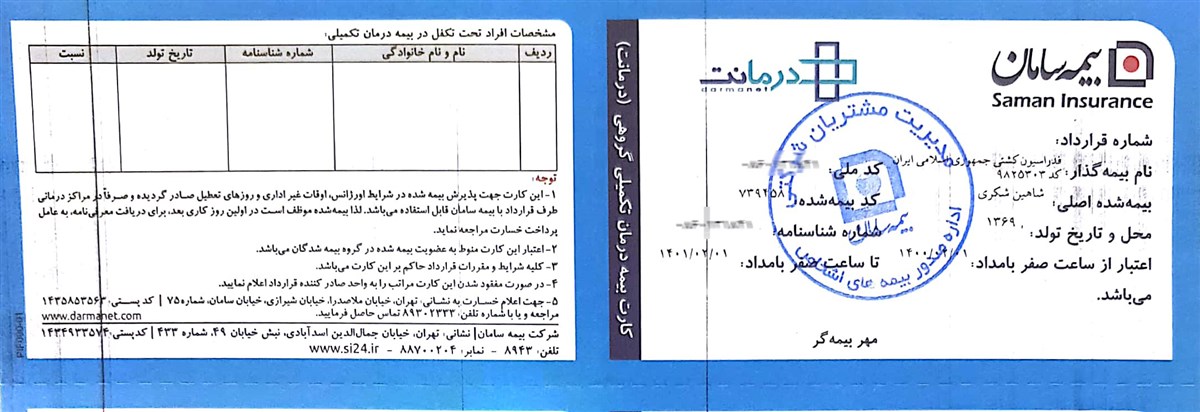 بیمه سامان
Saman Insurance
درمانت
darmanet
شماره قرارداد:
نام بیمه‌گذار: فدراسیون کشتی جمهوری اسلامی ایران کد ۹۸۲۵۳۰۳
کد ملی:
بیمه‌شده اصلی: شاهین شکری
کد بیمه‌شده: ۷۳۹۴۵۸
محل و تاریخ تولد: ۱۳۶۹
شماره شناسنامه:
اعتبار از ساعت صفر بامداد: ۱۴۰۰/۰۲/۰۱ تا ساعت صفر بامداد: ۱۴۰۱/۰۲/۰۱
می‌باشد.
مهر بیمه‌گر
مدیریت مشتریان
بیمه سامان
اداره صدور بیمه های اشخاص
کارت بیمه درمان تکمیلی گروهی (درمانت)
مشخصات افراد تحت تکفل در بیمه درمان تکمیلی:
ردیف نام و نام خانوادگی شماره شناسنامه تاریخ تولد نسبت
توجه:
۱- این کارت جهت پذیرش بیمه شده در شرایط اورژانس، اوقات غیر اداری و روزهای تعطیل صادر گردیده و صرفاً در مراکز درمانی
طرف قرارداد با بیمه سامان قابل استفاده می‌باشد. لذا بیمه‌شده موظف است در اولین روز کاری بعد، برای دریافت معرفی‌نامه، به عامل
پرداخت خسارت مراجعه نماید.
۲- اعتبار این کارت منوط به عضویت بیمه شده در گروه بیمه شدگان می‌باشد.
۳- کلیه شرایط و مقررات قرارداد حاکم بر این کارت می‌باشد.
۴- در صورت مفقود شدن این کارت مراتب را به واحد صادر کننده قرارداد اعلام نمایید.
۵- جهت اعلام خسارت به نشانی: تهران، خیابان ملاصدرا، خیابان شیرازی، خیابان سامان، شماره ۷۵ | کد پستی: ۱۴۳۵۸۵۳۵۶۳
مراجعه و یا با شماره تلفن: ۸۹۳۰۲۳۳۳ تماس حاصل فرمایید. www.darmanet.com
شرکت بیمه سامان | نشانی: تهران، خیابان جمال‌الدین اسدآبادی، نبش خیابان ۴۹، شماره ۴۳۳ | کدپستی: ۱۴۳۴۹۳۳۵۷۴
تلفن: ۸۹۴۳ - نمابر: ۸۸۷۰۰۲۰۴ - www.si24.ir